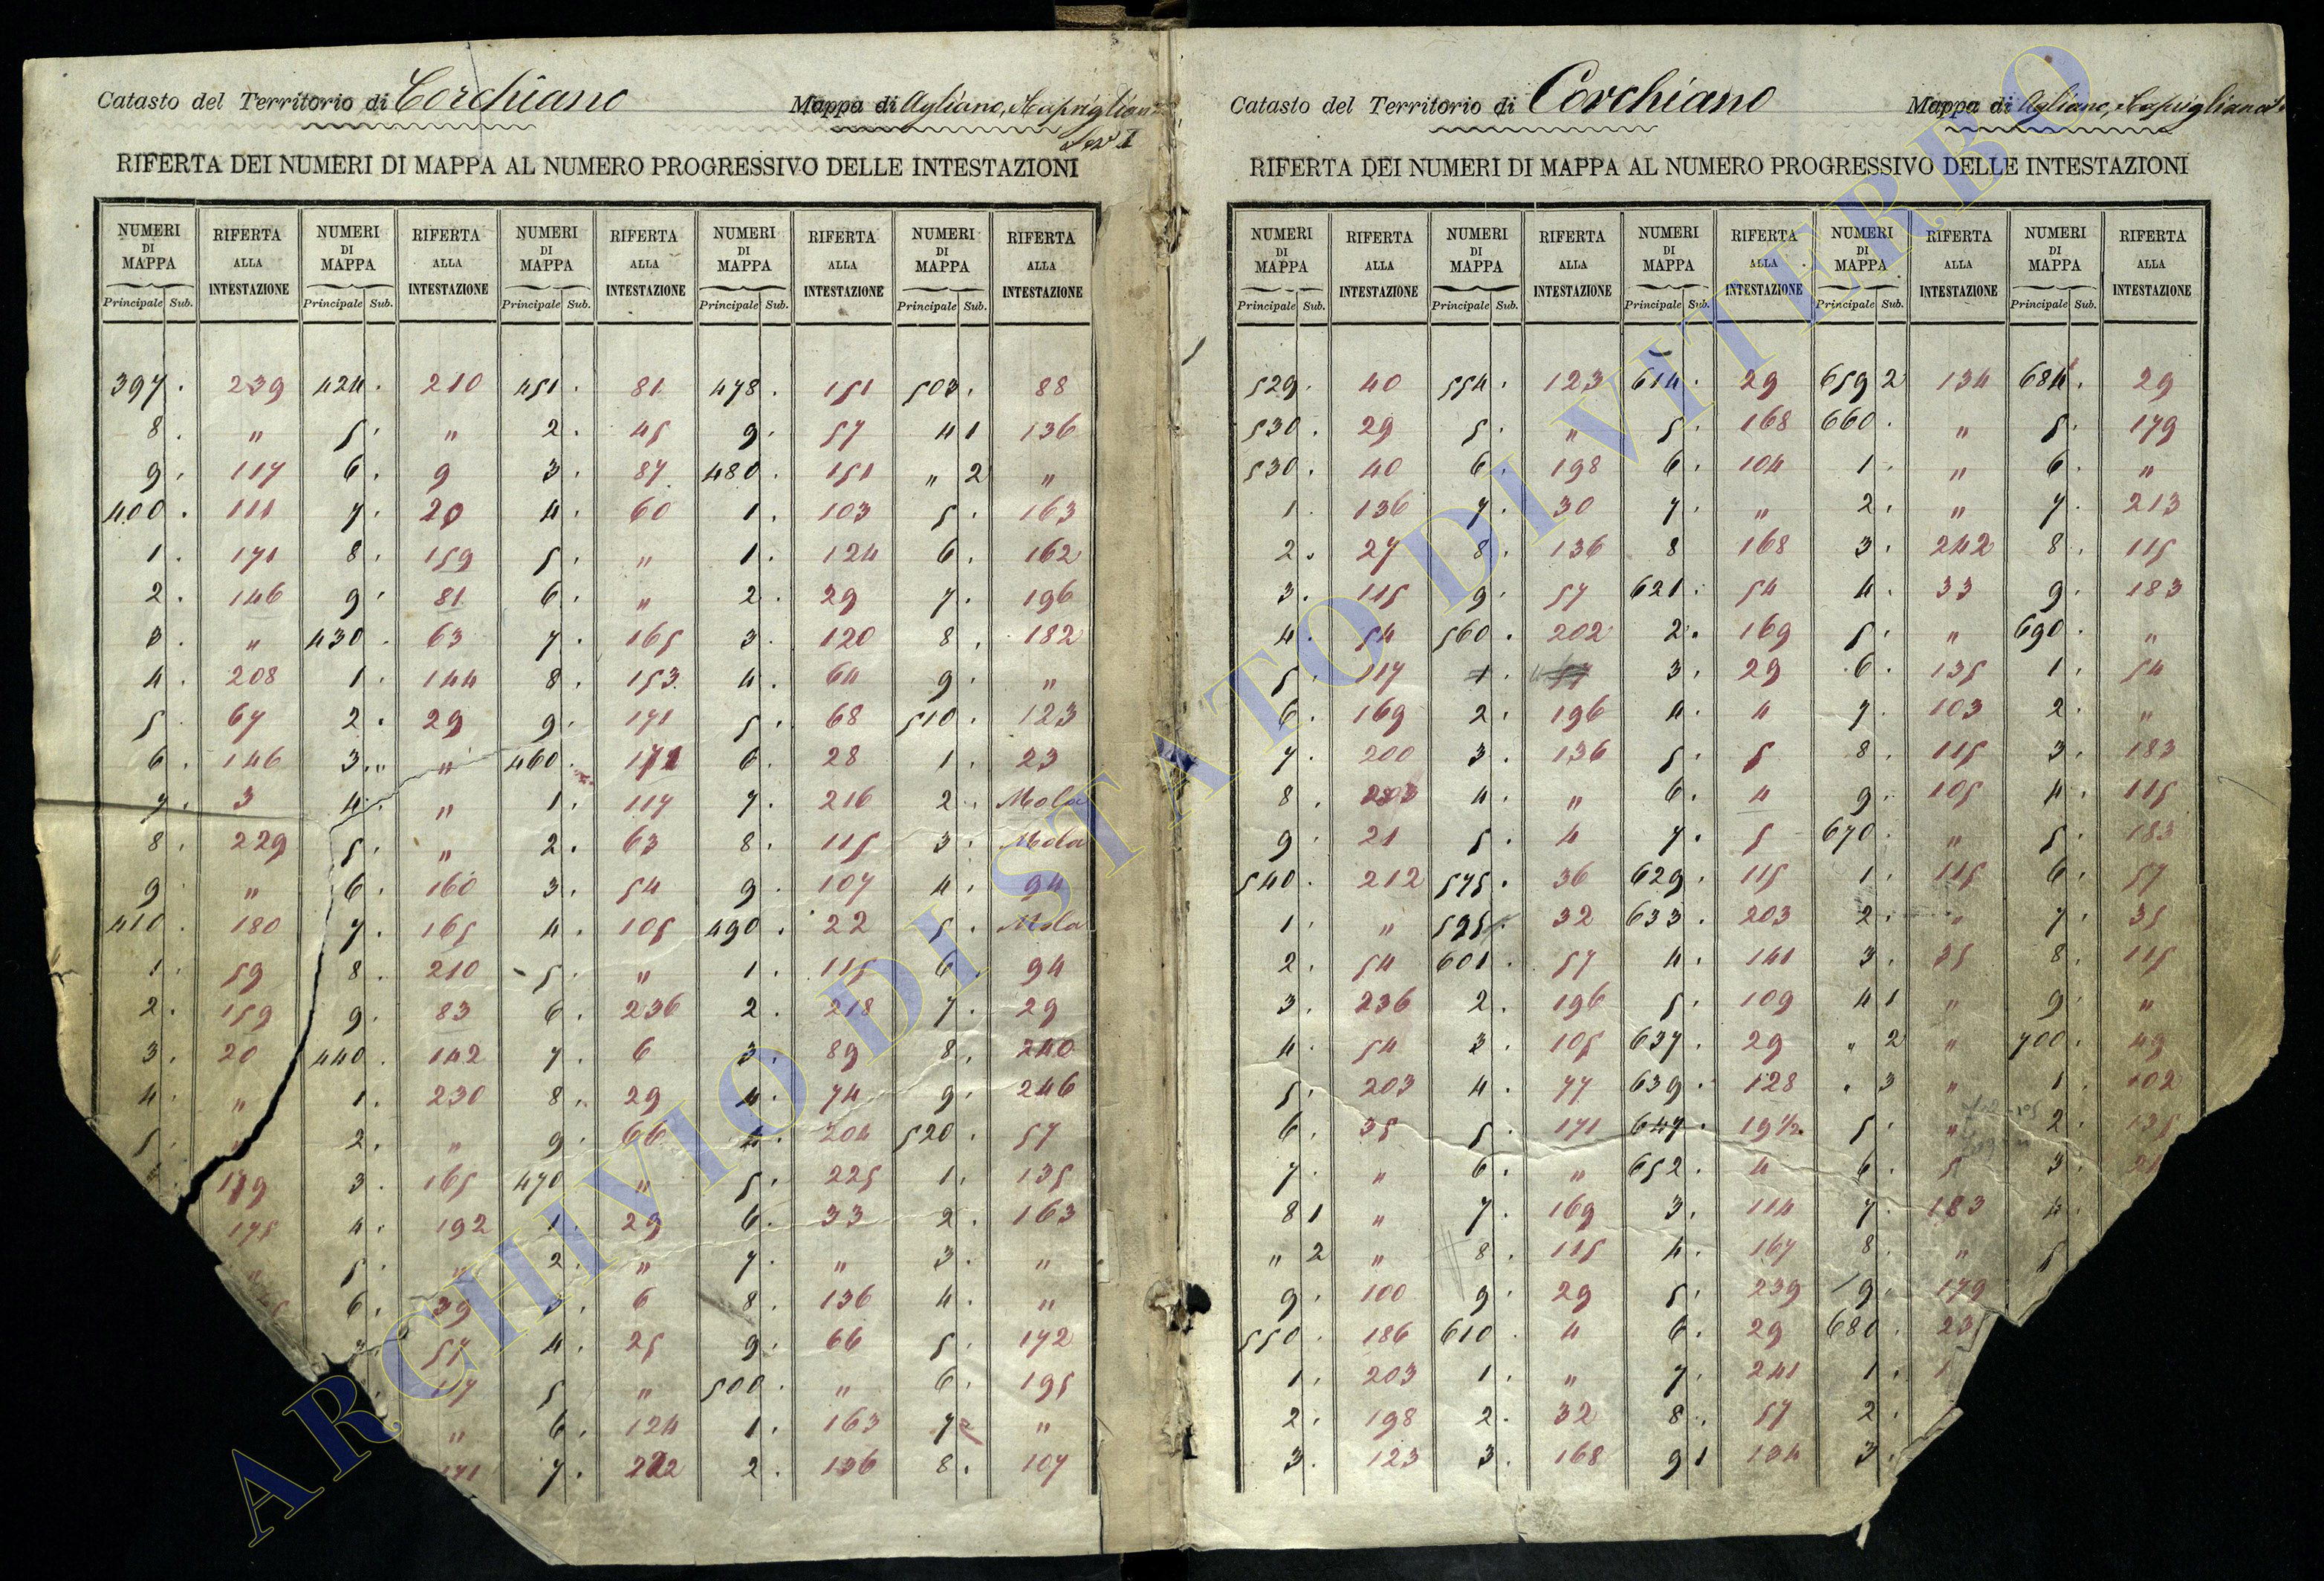 Catasto del Territorio di Corchiano Mappa di Agliano, Caprigliano
RIFERTA DEI NUMERI DI MAPPA AL NUMERO PROGRESSIVO DELLE INTESTAZIONI
NUMERI DI MAPPA RIFERTA ALLA INTESTAZIONE NUMERI DI MAPPA RIFERTA ALLA INTESTAZIONE NUMERI DI MAPPA RIFERTA ALLA INTESTAZIONE NUMERI DI MAPPA RIFERTA ALLA INTESTAZIONE NUMERI DI MAPPA RIFERTA ALLA INTESTAZIONE
Principale Sub. Principale Sub. Principale Sub. Principale Sub. Principale Sub.
397. 239 424. 210 451. 81 478. 151 503. 88
8. " 5. " 2. 45 9. 57 4 1 136
9. 117 6. 9 3. 87 480. 151 " 2 "
400. 111 7. 20 4. 60 1. 103 5. 163
1. 171 8. 159 5. " 1. 124 6. 162
2. 146 9. 81 6. " 2. 29 7. 196
3. " 430. 63 7. 165 3. 120 8. 182
4. 208 1. 144 8. 153 4. 64 9. "
5. 67 2. 29 9. 171 5. 68 510. 123
6. 146 3. " 460. 6. 28 1. 23
7. 3 4. " 1. 117 7. 216 2. Mola
8. 229 5. " 2. 63 8. 115 3. Mola
9. " 6. 160 3. 54 9. 107 4. 94
410. 180 7. 165 4. 105 490. 22 5. Mola
1. 59 8. 210 5. " 1. 115 6. 94
2. 159 9. 83 6. 236 2. 218 7. 29
3. 20 440. 142 7. 6 3. 89 8. 240
4. " 1. 230 8. 29 4. 74 9. 246
5. " 2. " 9. 66 4. 204 520. 57
179 3. 165 470 " 5. 225 1. 135
175 4. 192 1 29 6. 33 2. 163
" 5. " 2. " 7. " 3. "
6. 39 3. 6 8. 136 4. "
57 4. 25 9. 66 5. 172
117 5 " 500. " 6. 195
" 6. 124 1. 163 7 "
7. 2. 136 8. 107
Catasto del Territorio di Corchiano Mappa di Agliano, Caprigliano
RIFERTA DEI NUMERI DI MAPPA AL NUMERO PROGRESSIVO DELLE INTESTAZIONI
NUMERI DI MAPPA RIFERTA ALLA INTESTAZIONE NUMERI DI MAPPA RIFERTA ALLA INTESTAZIONE NUMERI DI MAPPA RIFERTA ALLA INTESTAZIONE NUMERI DI MAPPA RIFERTA ALLA INTESTAZIONE NUMERI DI MAPPA RIFERTA ALLA INTESTAZIONE
Principale Sub. Principale Sub. Principale Sub. Principale Sub. Principale Sub.
529. 40 554. 123 614. 29 659 2 134 684. 29
530. 29 5. " 5. 168 660. " 5. 179
530. 40 6. 198 6. 104 1. " 6. "
1. 136 7. 30 7. " 2. " 7. 213
2. 27 8. 136 8 168 3. 242 8. 115
3. 115 9. 57 621. 54 4. 33 9. 183
4. 54 560. 202 2. 169 5. " 690. "
5. 117 1. 3. 29 6. 135 1. 54
6. 169 2. 196 4. 4 7. 103 2. "
7. 200 3. 136 5. 5 8. 115 3. 183
8. 4. " 6. 4 9. 105 4. 115
9. 21 5. 4 7. 5 670. " 5. 183
540. 212 575. 36 629. 115 1. 115 6. 57
1. " 595. 32 633. 203 2. " 7. 35
2. 54 601. 57 4. 141 3. 35 8. 115
3. 236 2. 196 5. 109 4 1 " 9. "
4. 54 3. 105 637. 29 " 2 " 700. 49
5. 203 4. 77 639. 128 " 3 " 1. 102
6. 35 5. 171 647. 19 1/2 5. " 2. 135
7. " 6. " 652. 4 6. 5 3.
8 1 " 7. 169 3. 114 7. 183 4.
" 2 " 8. 115 4. 167 8. " 5
9. 100 9. 29 5. 239 9. 179
550. 186 610. 4 6. 29 680.
1. 203 1. " 7. 241 1.
2. 198 2. 32 8. 57 2.
3. 123 3. 168 9 1 134 3.
ARCHIVIO DI STATO DI VITERBO